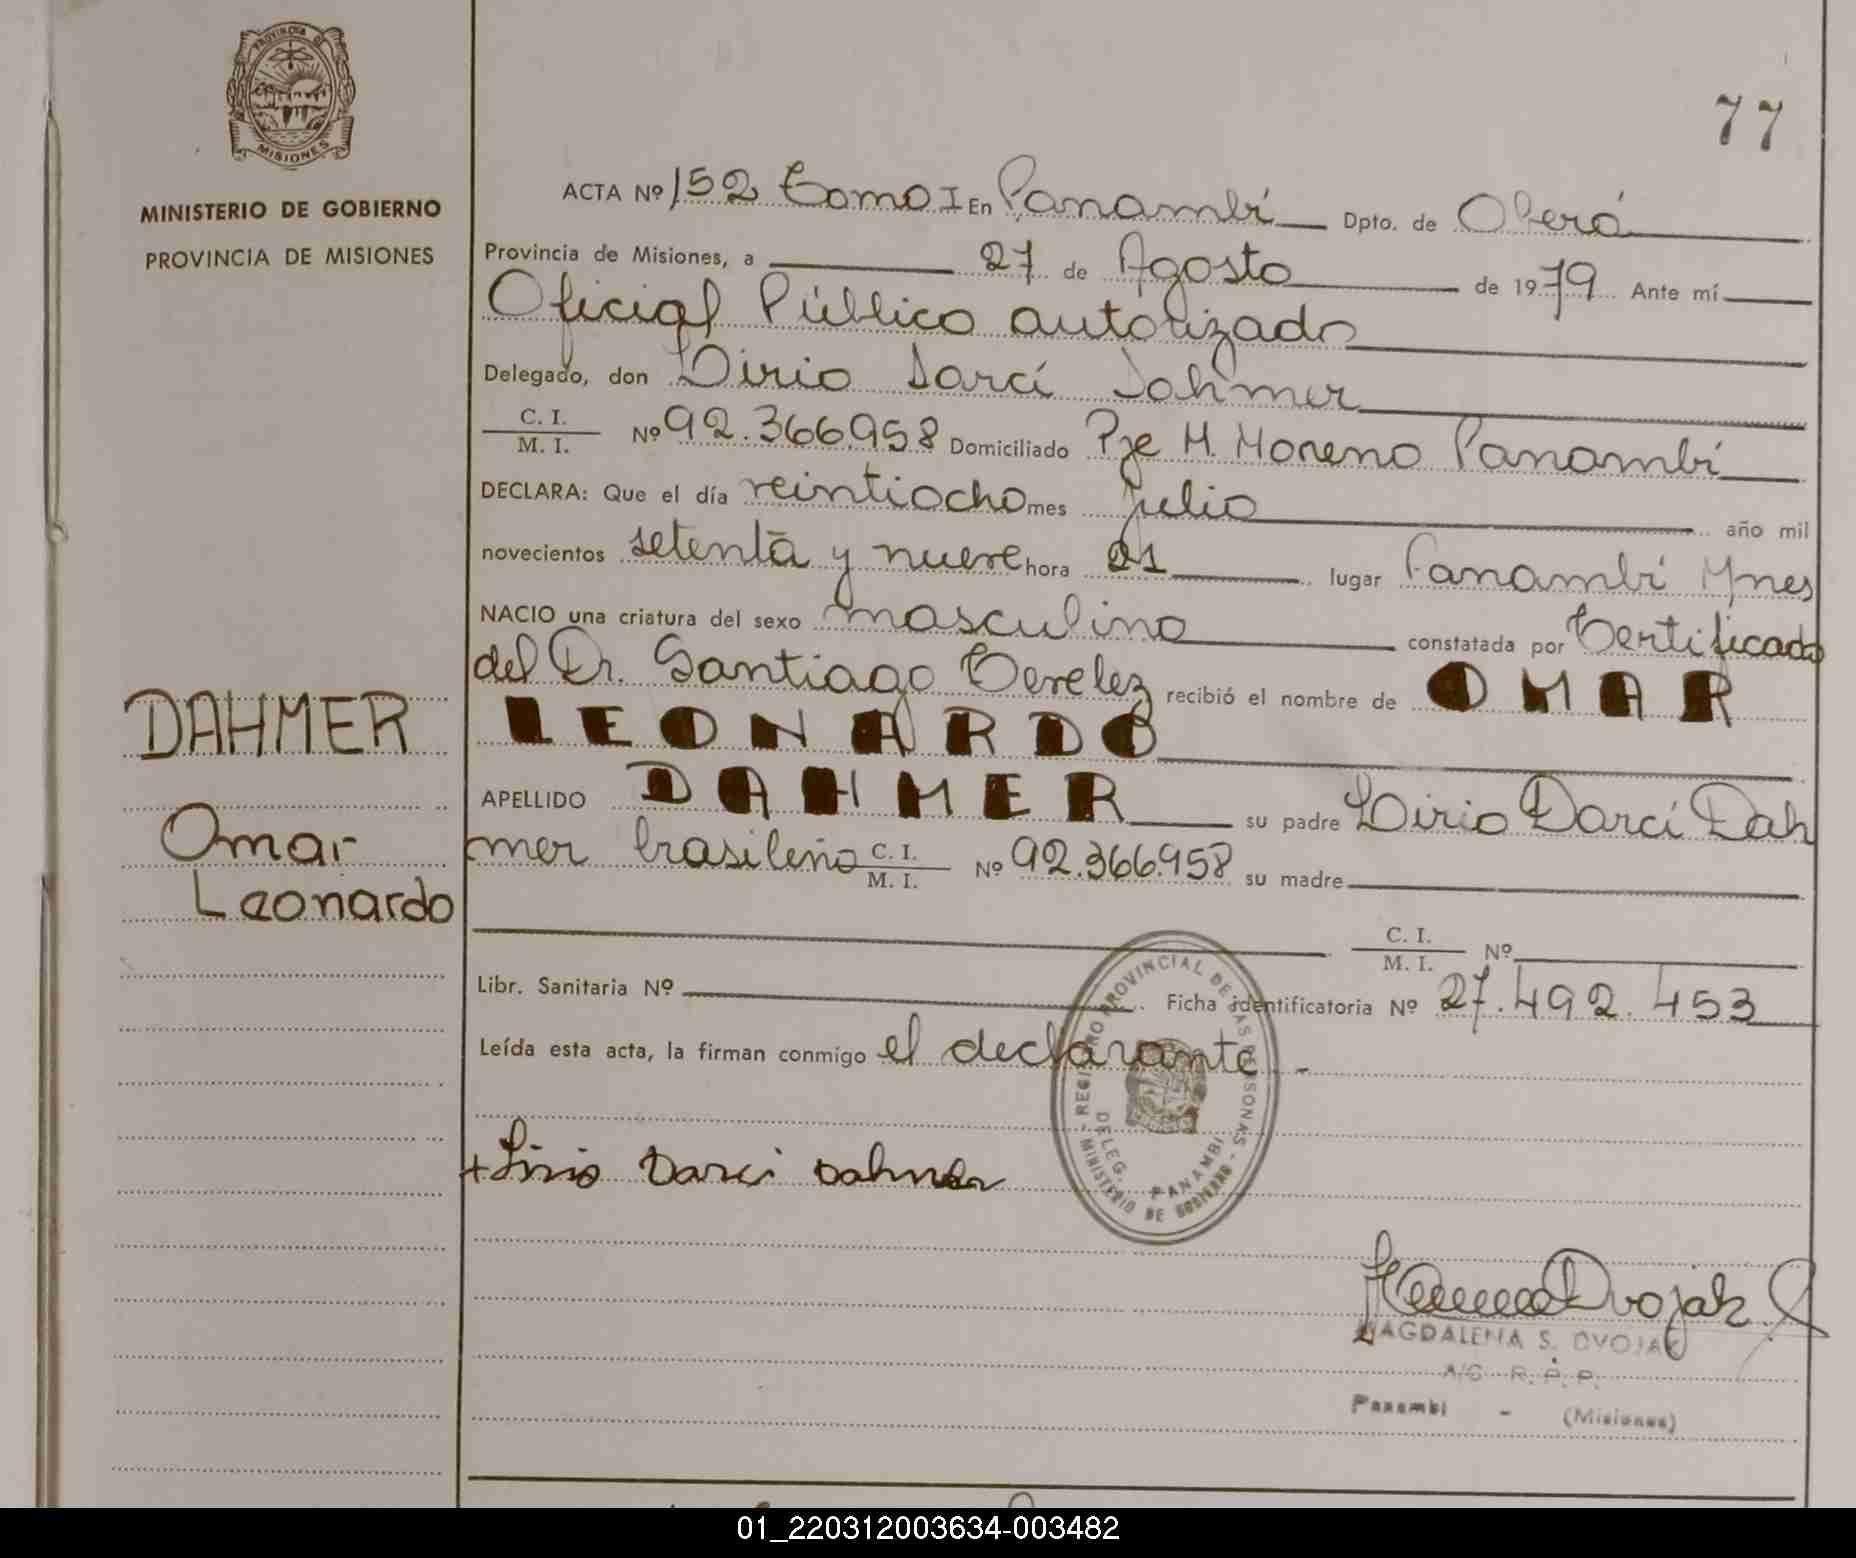 PROVINCIA DE
MISIONES
MINISTERIO DE GOBIERNO
PROVINCIA DE MISIONES
77
ACTA Nº 152 Tomo I En Panambí Dpto. de Oberá
Provincia de Misiones, a 27 de Agosto de 1979 Ante mí
Oficial Público autorizado
Delegado, don Lirio Darcí Dahmer
C. I. / M. I. Nº 92.366.958 Domiciliado Pje M. Moreno Panambí
DECLARA: Que el día veintiocho mes julio año mil
novecientos setenta y nueve hora 21 lugar Panambí Mnes
NACIO una criatura del sexo masculino constatada por Certificado
del Dr. Santiago recibió el nombre de OMAR
LEONARDO
APELLIDO DAHMER su padre Lirio Darcí Dah
mer brasileño C. I. / M. I. Nº 92.366.958 su madre
C. I. / M. I. Nº
Libr. Sanitaria Nº Ficha identificatoria Nº 27.492.453
Leída esta acta, la firman conmigo el declarante -
DAHMER
Omar
Leonardo
+ Lirio Darci Dahmer
REGISTRO PROVINCIAL DE LAS PERSONAS
DELEG. PANAMBI
MINISTERIO DE GOBIERNO
Dvojak
MAGDALENA S. DVOJAK
A/C R. P. P.
Panambi - (Misiones)
01_220312003634-003482